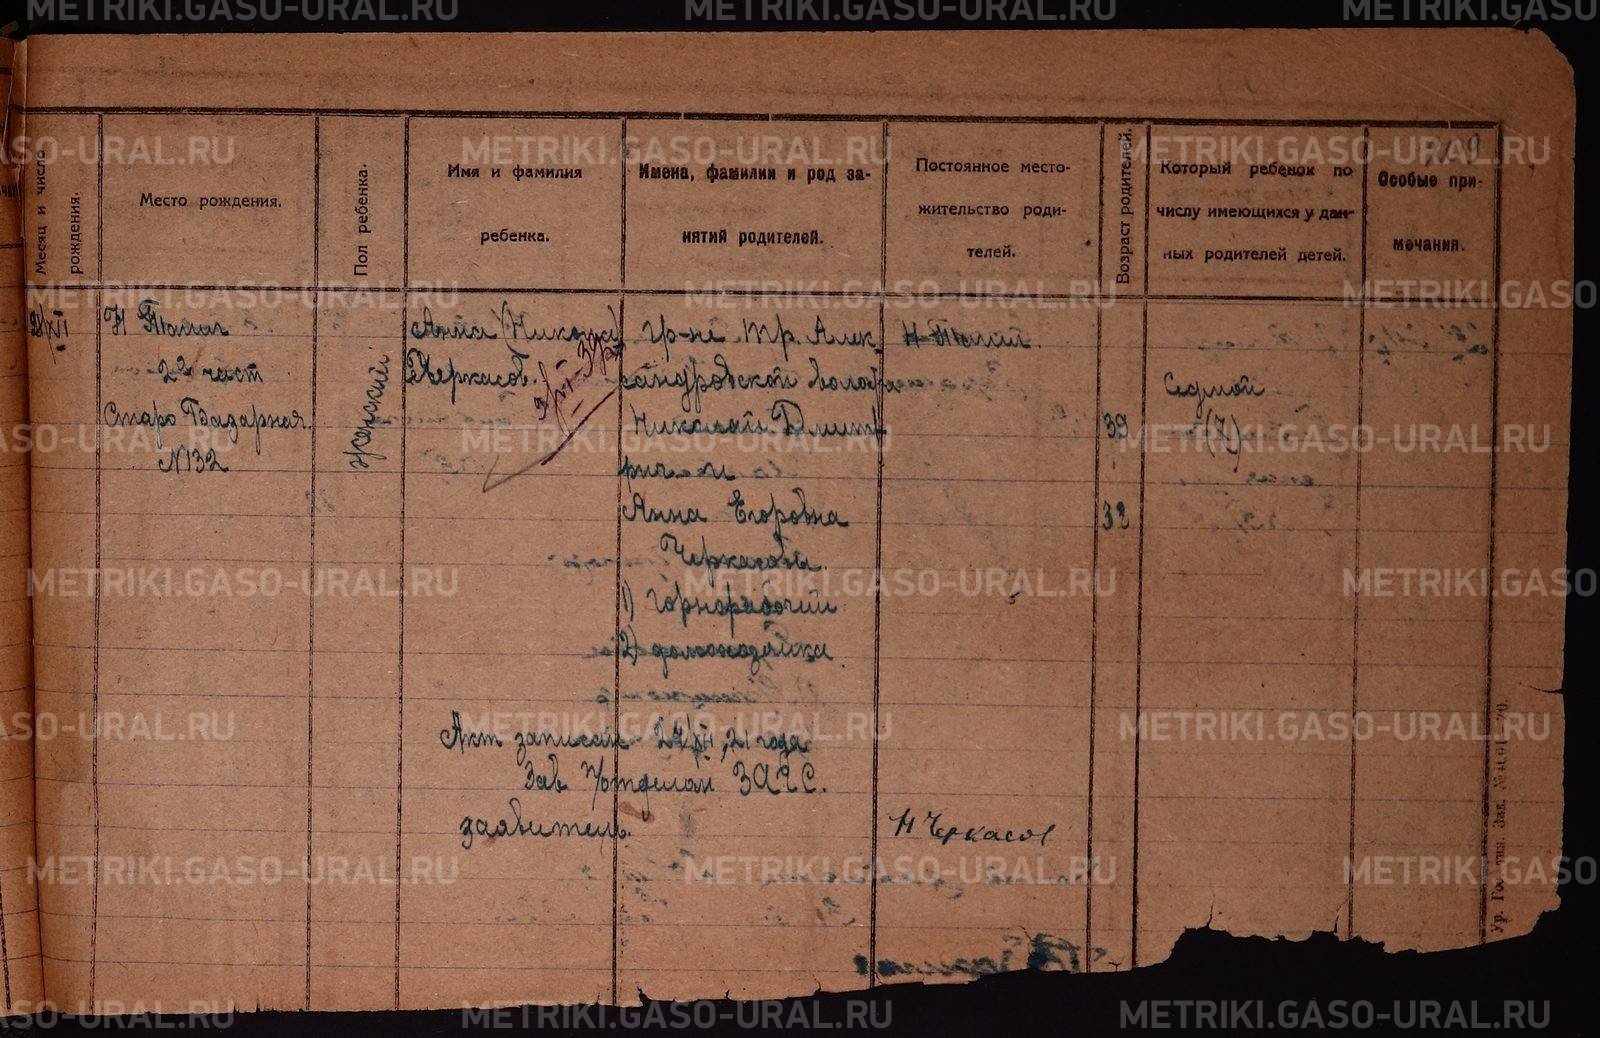 Месяц и число рождения.
Место рождения.
Пол ребенка.
Имя и фамилия
ребенка.
Имена, фамилии и род за-
нятий родителей.
Постоянное место-
жительство роди-
телей.
Возраст родителей.
Который ребенок по
числу имеющихся у дан-
ных родителей детей.
Особые при-
мечания.
Н Тагил
2я част
Старо Базарная
№132
женский
Анна
Черкасов.
гр-не Алек-
сандровской волости
Николай Дмит-
рич и
Анна Егоровна
Черкасовы.
1) горнорабочий
2) домохозяйка
Н-Тагил.
39
32
Седмой
(7)
Акт записан 29/XII, 21 года
Зав П/отделом ЗАГС.
заявитель.
Н Черкасов
METRIKI.GASO-URAL.RU